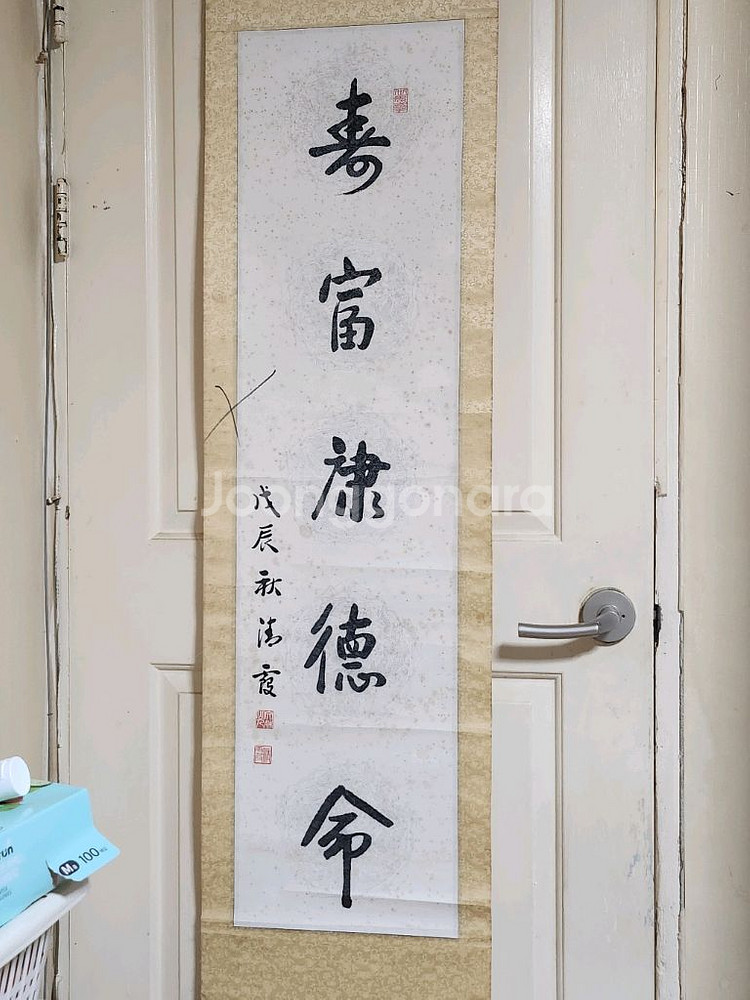 寿富康德命
戊辰秋 清霞
Joonggonara
M 100